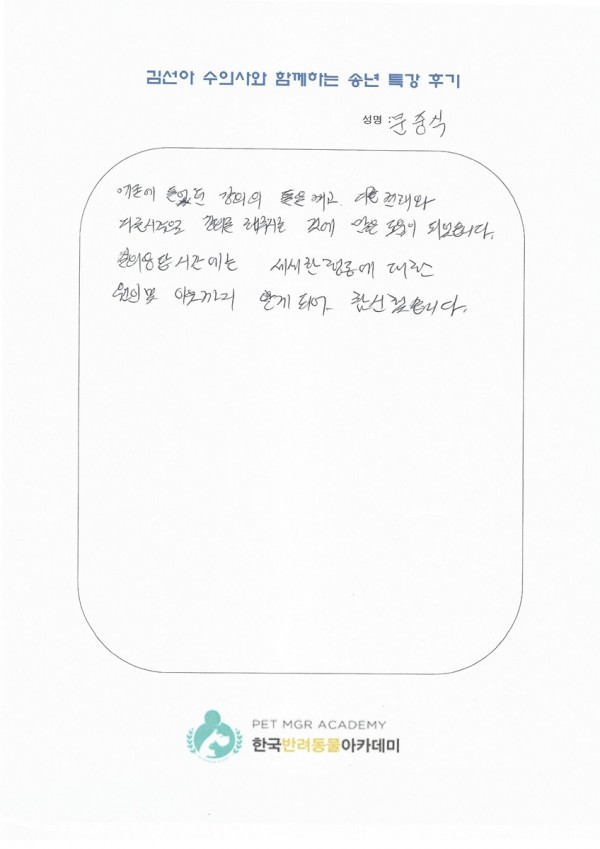 김선아 수의사와 함께하는 송년 특강 후기
성명 : 문중식
기존에 들었던 강의의 틀을 깨고 전래와
다른시각으로 강의를 해주시는 것에 많은 도움이 되었습니다.
질의응답시간에는 세세한 행동에 대한
원인및 까지 알게 되어 참신했습니다.
PET MGR ACADEMY
한국반려동물아카데미